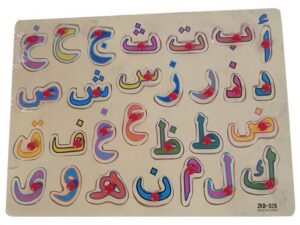 أ ب ت ث ج ح خ
د ذ ر ز س ش ص
ض ط ظ ع غ ف ق
ك ل م ن ه و ي
ZKB-028